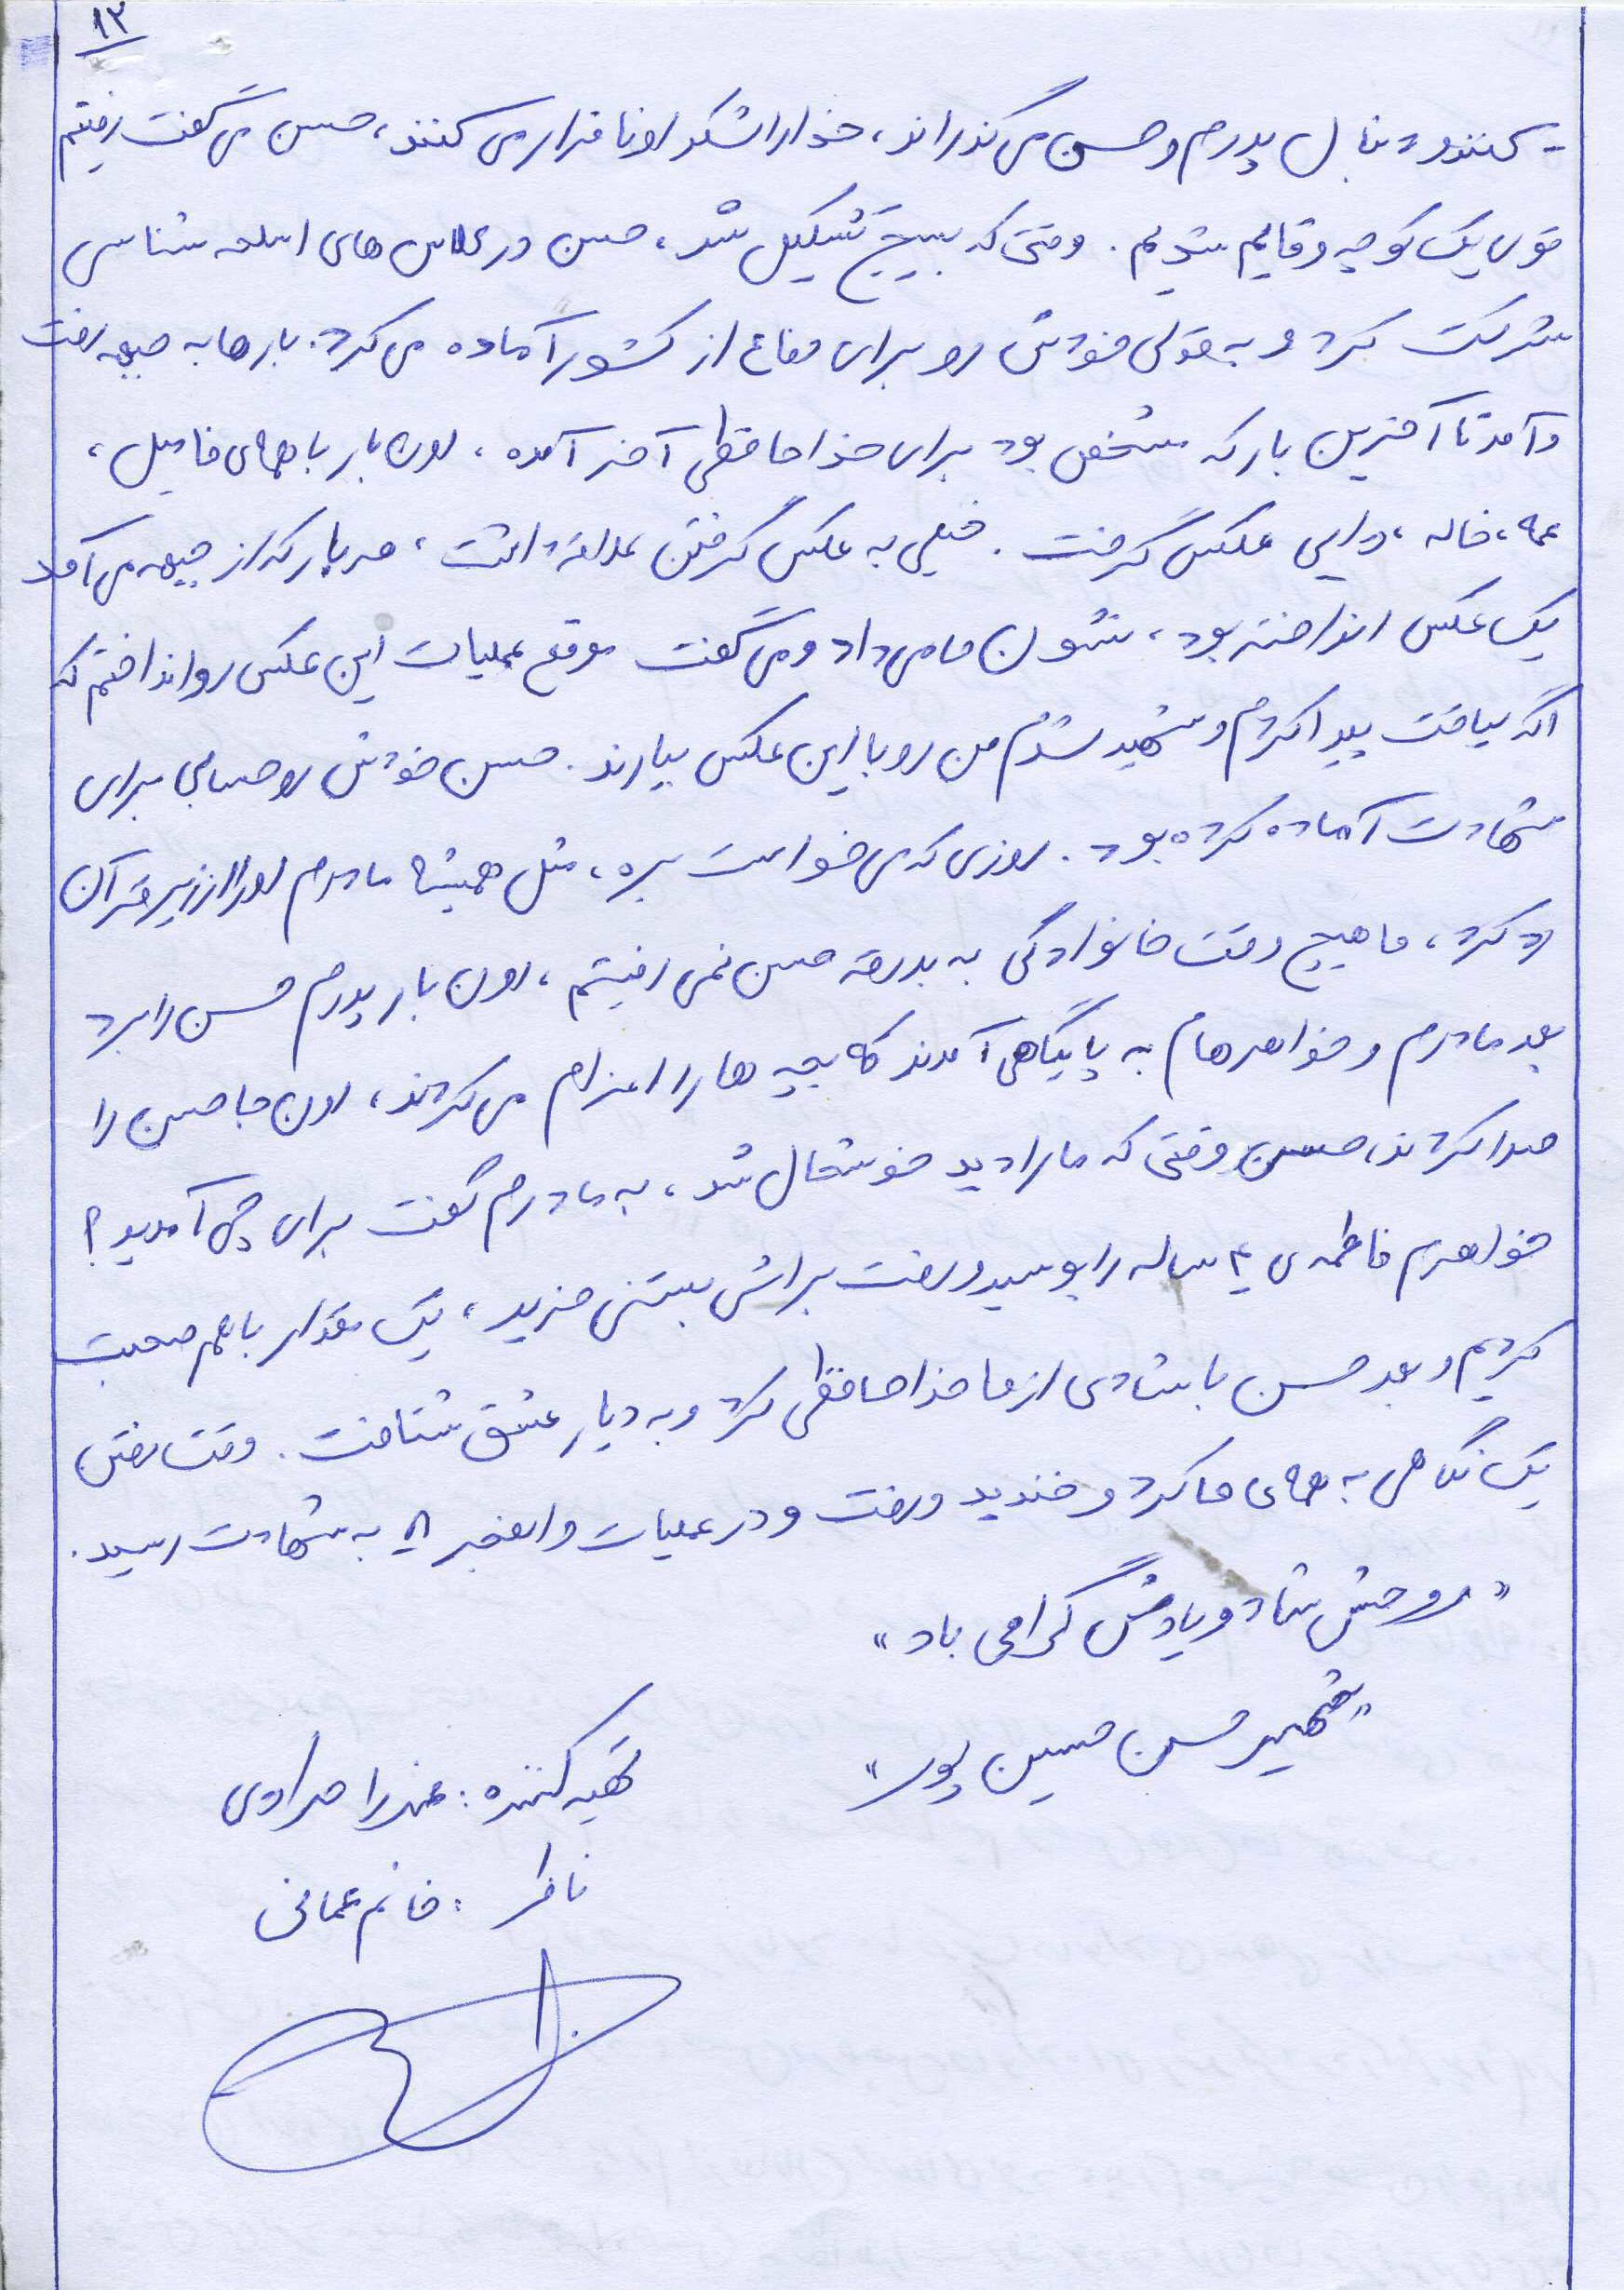 ۱۳
- کنند و دنبال پدرم و حسن می گذراند، خدا را شکر اونا فرار می کنند، حسن می گفت رفتیم
توی یک کوچه و قایم شدیم. وقتی که بسیج تشکیل شد، حسن در کلاس های اسلحه شناسی
شرکت کرد و به قولی خودش رو برای دفاع از کشور آماده می کرد. بارها به جبهه رفت
و آمد تا آخرین بار که مشخص بود برای خداحافظی آخر آمده، اون بار با همه ی فامیل،
عمه، خاله، دایی عکس گرفت. خیلی به عکس گرفتن علاقه داشت، هر بار که از جبهه می آمد
یک عکس انداخته بود، نشون ما می داد و می گفت موقع عملیات این عکس رو انداختم که
اگه لیاقت پیدا کردم و شهید شدم من رو با این عکس بیارند. حسن خودش رو حسابی برای
شهادت آماده کرده بود. روزی که می خواست بره، مثل همیشه مادرم اورا از زیر قرآن
رد کرد، ما هیچ وقت خانوادگی به بدرقه حسن نمی رفتیم، اون بار پدرم حسن را برد
بعد مادرم و خواهرهام به پایگاهی آمدند که بچه ها را اعزام می کردند، اون جا حسن را
صدا کردند، حسن وقتی که ما را دید خوشحال شد، به مادرم گفت برای چی آمدید؟
خواهرم فاطمه ی ۴ ساله را بوسید و رفت براش بستنی خرید، یک مقدار با هم صحبت
کردیم و بعد حسن با شادی از ما خداحافظی کرد و به دیار عشق شتافت. وقت رفتن
یک نگاهی به همه ی ما کرد و خندید و رفت و در عملیات والفجر ۸ به شهادت رسید.
"روحش شاد و یادش گرامی باد"
"شهید حسن حسین پور"
تهیه کننده: عذرا مرادی
ناظر: خانم عمانی